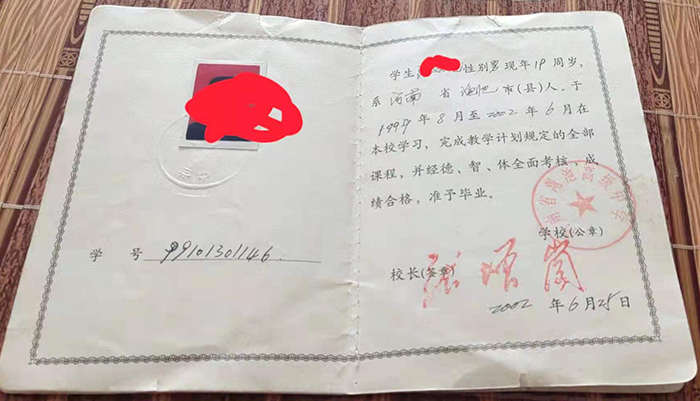 学号 99101301146
学生 性别男现年19周岁,
系河南省渑池市(县)人、于
1999年8月至2002年6月在
本校学习,完成教学计划规定的全部
课程,并经德、智、体全面考核、成
绩合格,准予毕业。
学校(公章)
校长(签章)
2002年6月25日